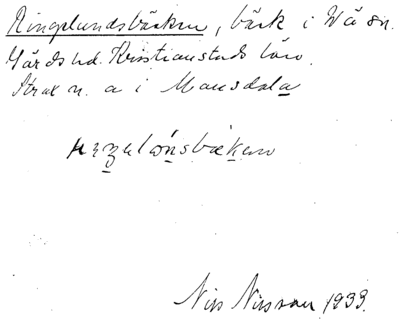 Ringelundsbäcken, bäck i Vä sn.
Gärds hd. Kristianstads län.
Strax n. a i Mansdala
Nils Nilsson 1933.